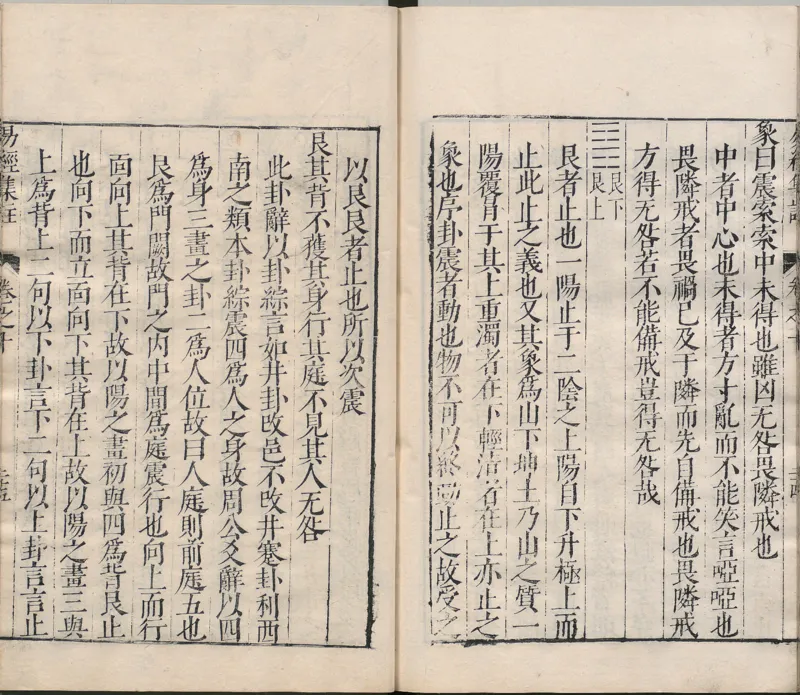 象曰震索索中未得也雖凶无咎畏隣戒也
中者中心也未得者方寸亂而不能笑言啞啞也
畏隣戒者畏禍已及于隣而先自備戒也畏隣戒
方得无咎若不能備戒豈得无咎哉
艮下
艮上
艮者止也一陽止于二陰之上陽自下升極上而
止此止之義也又其象為山下坤土乃山之質一
陽覆冐于其上重濁者在下輕清者在上亦止之
象也序卦震者動也物不可以終動止之故受之
以艮艮者止也所以次震
艮其背不獲其身行其庭不見其人无咎
此卦辭以卦綜言如井卦改邑不改井蹇卦利西
南之類本卦綜震四為人之身故周公爻辭以四
為身三畫之卦二為人位故曰人庭則前庭五也
艮為門闕故門之內中間為庭震行也向上而行
面向上其背在下故以陽之畫初與四為背艮止
也向下而立面向下其背在上故以陽之畫三與
上為背上二句以下卦言下二句以上卦言言止
易經集註
卷之十